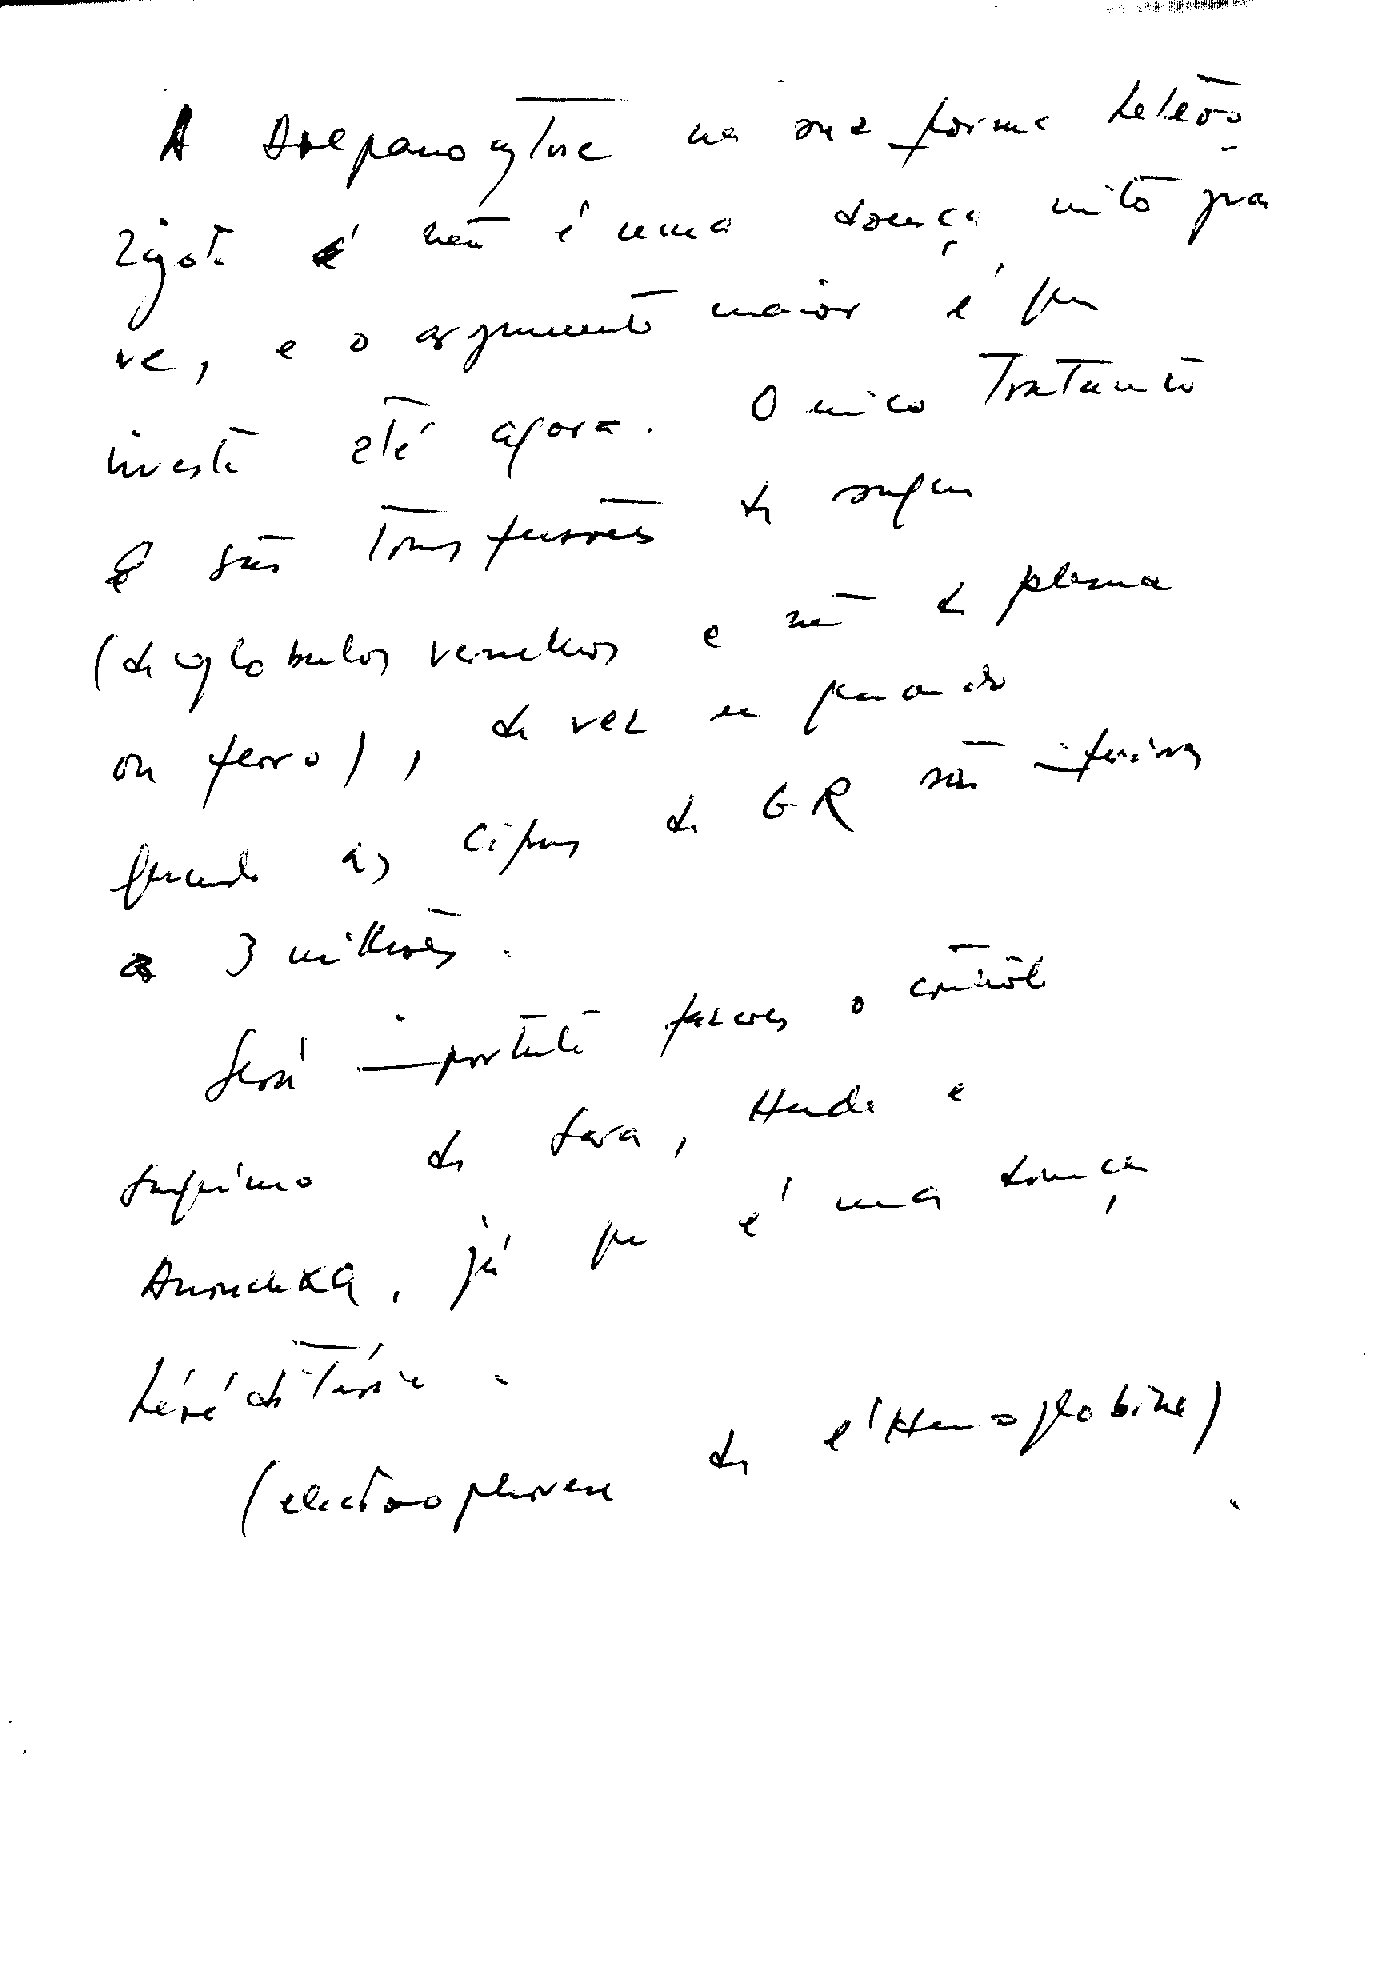 A Drepanocytose na sua forma hetero-
zigota não é uma doença muito gra
ve, e o argumento maior é que
viveste até agora. O unico Tratamento
são Transfusões de sangue
(de globulos vermelhos e não de plasma
ou ferro), de vez em quando
quando as cifras de GR são inferiores
a 3 milhões.
Será importante fazeres o controle
sanguíneo da Sara, Henda e
Anouchka, já que é uma doença
héréditária.
(electrophorese de l'Hemoglobine)